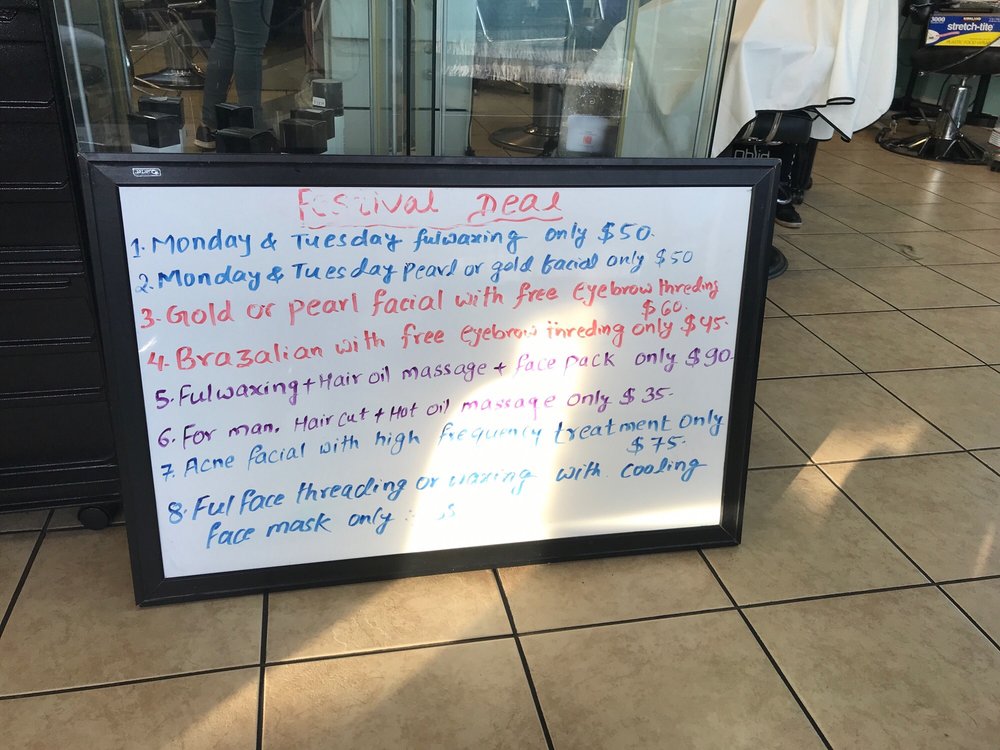 Festival Deal
1. Monday & Tuesday fulwaxing only $50.
2. Monday & Tuesday Pearl or gold facial only $50
3. Gold or pearl facial with free eyebrow threding
$60.
4. Brazalian with free eyebrow threding only $45.
5. Fulwaxing + Hair oil massage + face pack only $90.
6. For man, Hair cut + Hot oil massage only $35.
7. Acne facial with high frequency treatment only
$75.
8. Ful face threading or waxing with cooling
face mask only
3000
KIRKLAND
stretch-tite
PLASTIC FOOD WRAP